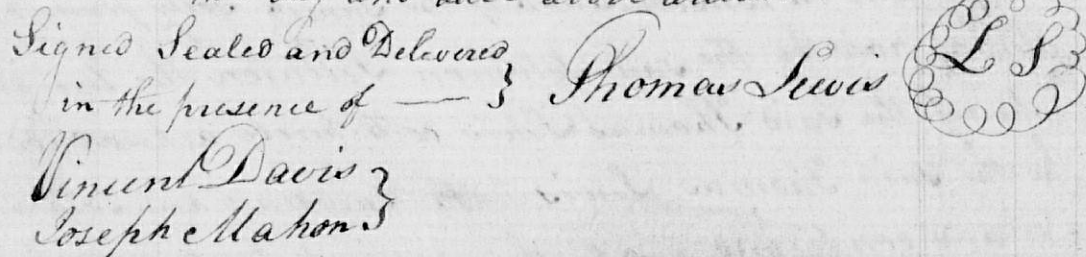 Signed Sealed and Delivered
in the presence of — } Thomas Lewis L S
Vincent Davis
Joseph Mahon }